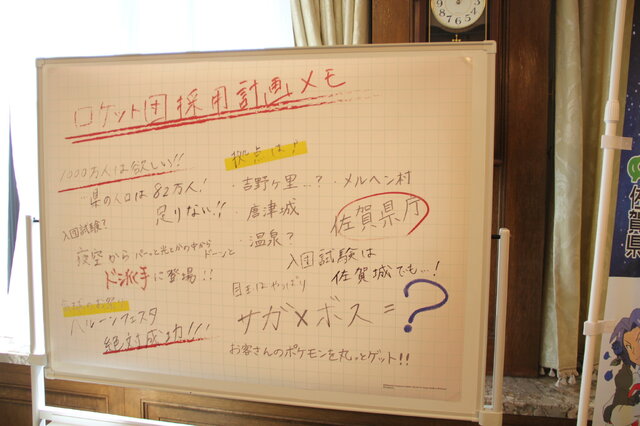 ロケット団採用計画メモ
1000万人は欲しい!!
県の人口は82万人!
足りない!!
入団試験?
夜空からパーっと光とかの中からドーンと
ド派手に登場!!
バルーンフェスタ
絶対成功!!!
拠点は!
・吉野ヶ里…?
・メルヘン村
・唐津城
佐賀県庁
・温泉?
入団試験は
佐賀城でも…!
目玉はやっぱり
サガ×ボス=?
お客さんのポケモンを丸っとゲット!!
佐賀県